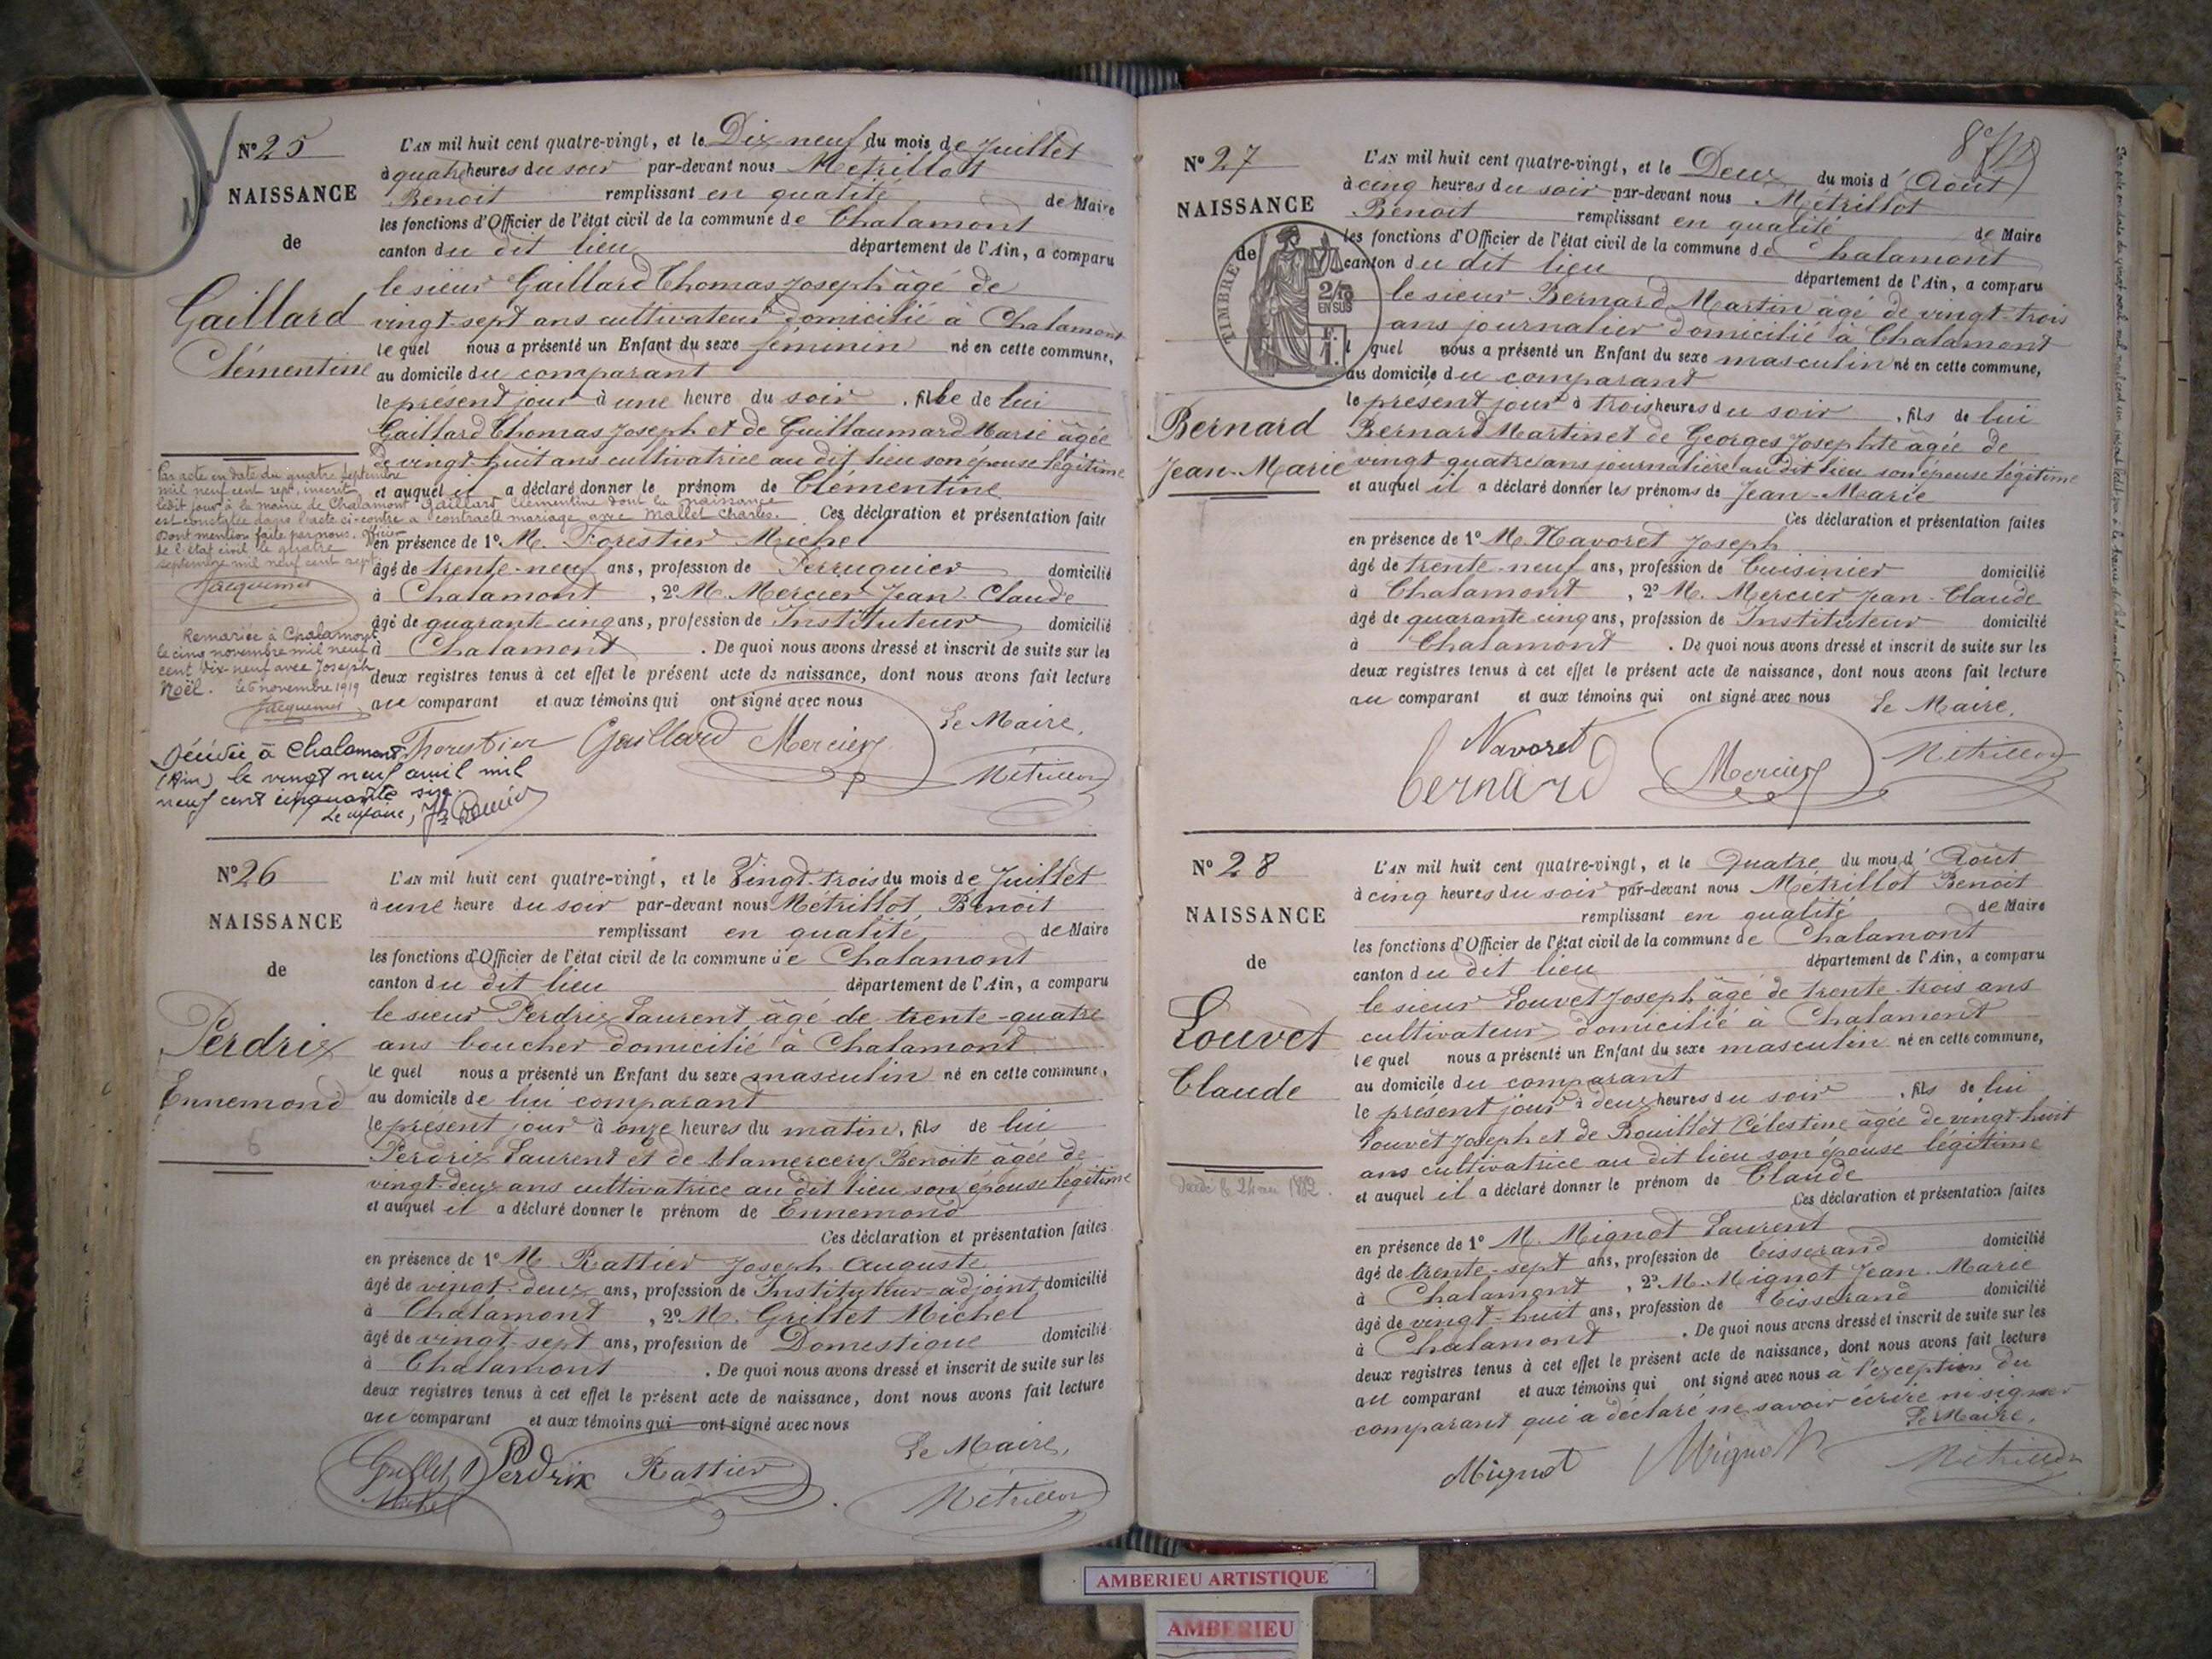 N° 25
NAISSANCE
de
Gaillard
Clémentine
L'AN mil huit cent quatre-vingt, et le Dix-neuf du mois de Juillet
à quatre heures du soir par-devant nous Métrillot
Benoit remplissant en qualité de Maire
les fonctions d'Officier de l'état civil de la commune de Chalamont
canton du dit lieu département de l'Ain, a comparu
le sieur Gaillard Thomas Joseph âgé de
vingt-sept ans cultivateur domicilié à Chalamont
lequel nous a présenté un Enfant du sexe féminin né en cette commune,
au domicile du comparant
le présent jour à une heure du soir, fille de lui
Gaillard Thomas Joseph et de Guillaumard Marie âgée
de vingt-huit ans cultivatrice au dit lieu son épouse légitime
et auquel il a déclaré donner le prénom de Clémentine
Ces déclaration et présentation faites
en présence de 1° M. Forestier Michel
âgé de trente-neuf ans, profession de Perruquier domicilié
à Chalamont, 2° M. Mercier Jean-Claude
âgé de quarante cinq ans, profession de Instituteur domicilié
à Chalamont. De quoi nous avons dressé et inscrit de suite sur les
deux registres tenus à cet effet le présent acte de naissance, dont nous avons fait lecture
au comparant et aux témoins qui ont signé avec nous
Le Maire,
Forestier Gaillard Mercier Métrillot
Par acte en date du quatre septembre
mil neuf cent sept, inscrit
ledit jour à la mairie de Chalamont Gaillard Clémentine dont la naissance
est constatée dans l'acte ci-contre a contracté mariage avec Mallet Charles.
Dont mention faite par nous, officier
de l'état civil le quatre
septembre mil neuf cent sept
Jacquemet
Remariée à Chalamont
le cinq novembre mil neuf
cent dix-neuf avec Joseph
Noël. le 6 novembre 1919
Jacquemet
Décédée à Chalamont
(Ain) le vingt neuf avril mil
neuf cent cinquante six.
Le Maire,
N° 26
NAISSANCE
de
Perdrix
Ennemond
6
L'AN mil huit cent quatre-vingt, et le Vingt-trois du mois de Juillet
à une heure du soir par-devant nous Métrillot Benoit
remplissant en qualité de Maire
les fonctions d'Officier de l'état civil de la commune de Chalamont
canton du dit lieu département de l'Ain, a comparu
le sieur Perdrix Laurent âgé de trente-quatre
ans boucher domicilié à Chalamont
lequel nous a présenté un Enfant du sexe masculin né en cette commune,
au domicile de lui comparant
le présent jour à onze heures du matin, fils de lui
Perdrix Laurent et de Benoite âgée de
vingt-deux ans cultivatrice au dit lieu son épouse légitime
et auquel il a déclaré donner le prénom de Ennemond
Ces déclaration et présentation faites
en présence de 1° M. Rattier Joseph Auguste
âgé de vingt-deux ans, profession de Instituteur-adjoint domicilié
à Chalamont, 2° M. Grillet Michel
âgé de vingt-sept ans, profession de Domestique domicilié
à Chalamont. De quoi nous avons dressé et inscrit de suite sur les
deux registres tenus à cet effet le présent acte de naissance, dont nous avons fait lecture
au comparant et aux témoins qui ont signé avec nous
Le Maire,
Grillet Perdrix Rattier Métrillot
Michel
N° 27
NAISSANCE
de
TIMBRE
2/10
EN SUS
Bernard
Jean-Marie
L'AN mil huit cent quatre-vingt, et le Deux du mois d'Août
à cinq heures du soir par-devant nous Métrillot
Benoit remplissant en qualité de Maire
les fonctions d'Officier de l'état civil de la commune de Chalamont
canton du dit lieu département de l'Ain, a comparu
le sieur Bernard Martin âgé de vingt-trois
ans journalier domicilié à Chalamont
lequel nous a présenté un Enfant du sexe masculin né en cette commune,
au domicile du comparant
le présent jour à trois heures du soir, fils de lui
Bernard Martin et de Georges Josephte âgée de
vingt-quatre ans journalière au dit lieu son épouse légitime
et auquel il a déclaré donner les prénoms de Jean-Marie
Ces déclaration et présentation faites
en présence de 1° M. Navoret Joseph
âgé de trente-neuf ans, profession de Cuisinier domicilié
à Chalamont, 2° M. Mercier Jean-Claude
âgé de quarante cinq ans, profession de Instituteur domicilié
à Chalamont. De quoi nous avons dressé et inscrit de suite sur les
deux registres tenus à cet effet le présent acte de naissance, dont nous avons fait lecture
au comparant et aux témoins qui ont signé avec nous
Le Maire,
Navoret
Bernard Mercier Métrillot
N° 28
NAISSANCE
de
Louvet
Claude
L'AN mil huit cent quatre-vingt, et le Quatre du mois d'Août
à cinq heures du soir par-devant nous Métrillot Benoit
remplissant en qualité de Maire
les fonctions d'Officier de l'état civil de la commune de Chalamont
canton du dit lieu département de l'Ain, a comparu
le sieur Louvet Joseph âgé de trente-trois ans
cultivateur domicilié à Chalamont
lequel nous a présenté un Enfant du sexe masculin né en cette commune,
au domicile du comparant
le présent jour à deux heures du soir, fils de lui
Louvet Joseph et de Rouillet Célestine âgée de vingt-huit
ans cultivatrice au dit lieu son épouse légitime
et auquel il a déclaré donner le prénom de Claude
Ces déclaration et présentation faites
en présence de 1° M. Mignot Laurent
âgé de trente-sept ans, profession de Tisserand domicilié
à Chalamont, 2° M. Mignot Jean-Marie
âgé de vingt-huit ans, profession de Tisserand domicilié
à Chalamont. De quoi nous avons dressé et inscrit de suite sur les
deux registres tenus à cet effet le présent acte de naissance, dont nous avons fait lecture
au comparant et aux témoins qui ont signé avec nous à l'exception du
comparant qui a déclaré ne savoir écrire ni signer
Le Maire,
Mignot Mignot Métrillot
AMBERIEU ARTISTIQUE
AMBERIEU